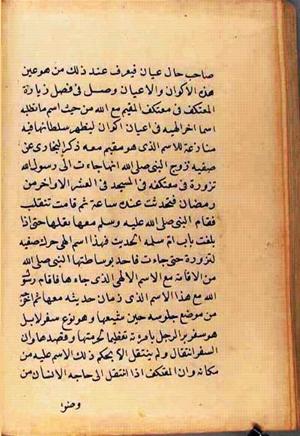 صاحب حال عيان فيعرف عند ذلك من هو عين
هذه الأكوان والاعيان وصل في فصل زيارة
المعتكف في معتكفه المقيم مع الله من حيث اسم ما تطلبه
اسما اخر الهية في اعيان اكوان ليظهر سلطانها فيه
منازعة للاسم الذى هو مقيم معه ذكر البخارى عن
صفيه تزوج النبى صلى الله انها جاءت الى رسول الله
تزورة في معتكفه في المسجد في العشر الاواخر من
رمضان فتحدثت عنده ساعة ثم قامت تنقلب
فقام النبى صلى الله عليه وسلم معها يقلبها حتى اذا
بلغت باب ام سلمه الحديث فهذا اسم الهى حرك صفيه
لتزورة حتى جاءت فاخذ بوساطتها النبى صلى الله
من الاقامة مع الاسم الالهى الذى جاءها فاقام رسول
الله مع هذا الاسم الذى زمان حديثه معها ثم تحرك
من موضع جلوسه حين مشيعها وهو نوع سفر لا بل
هو سفر بر الرجل بامرءته تعظيما لحرمتها وقصدها وان
السفر انتقال ولم ينتقل الا بحكم ذلك الاسم عليه من
مكانه وان المعتكف اذا انتقل الى حاجه الانسان من
وضو